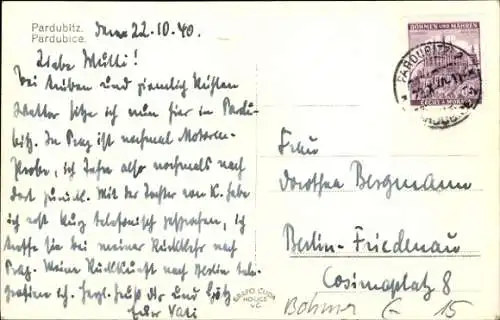 Pardubitz.
Pardubice.
den 22.10.40.
Liebe Mutti!
Bei trüben und ziemlich kühlen
Wetter sitze ich nun hier in Pardu-
bitz. In Prag ist nochmal Motoren-
Probe, ich fahre also nochmals nach
dort zurück. Mit der Tochter von K. habe
ich erst kurz telefonisch gesprochen, ich
treffe sie bei meiner Rückkehr nach
Prag. Meine Rückkunft nach Berlin tele-
grafiere ich. Herzl. Gruß Dir und Götz
Euer Vati
BÖHMEN UND MÄHREN
ČECHY A MORAVA
PARDUBITZ
GRAFO ČUDA
HOLICE
Frau
Dorothea Bergmann
Berlin-Friedenau
Cosimaplatz 8
Böhmen
15